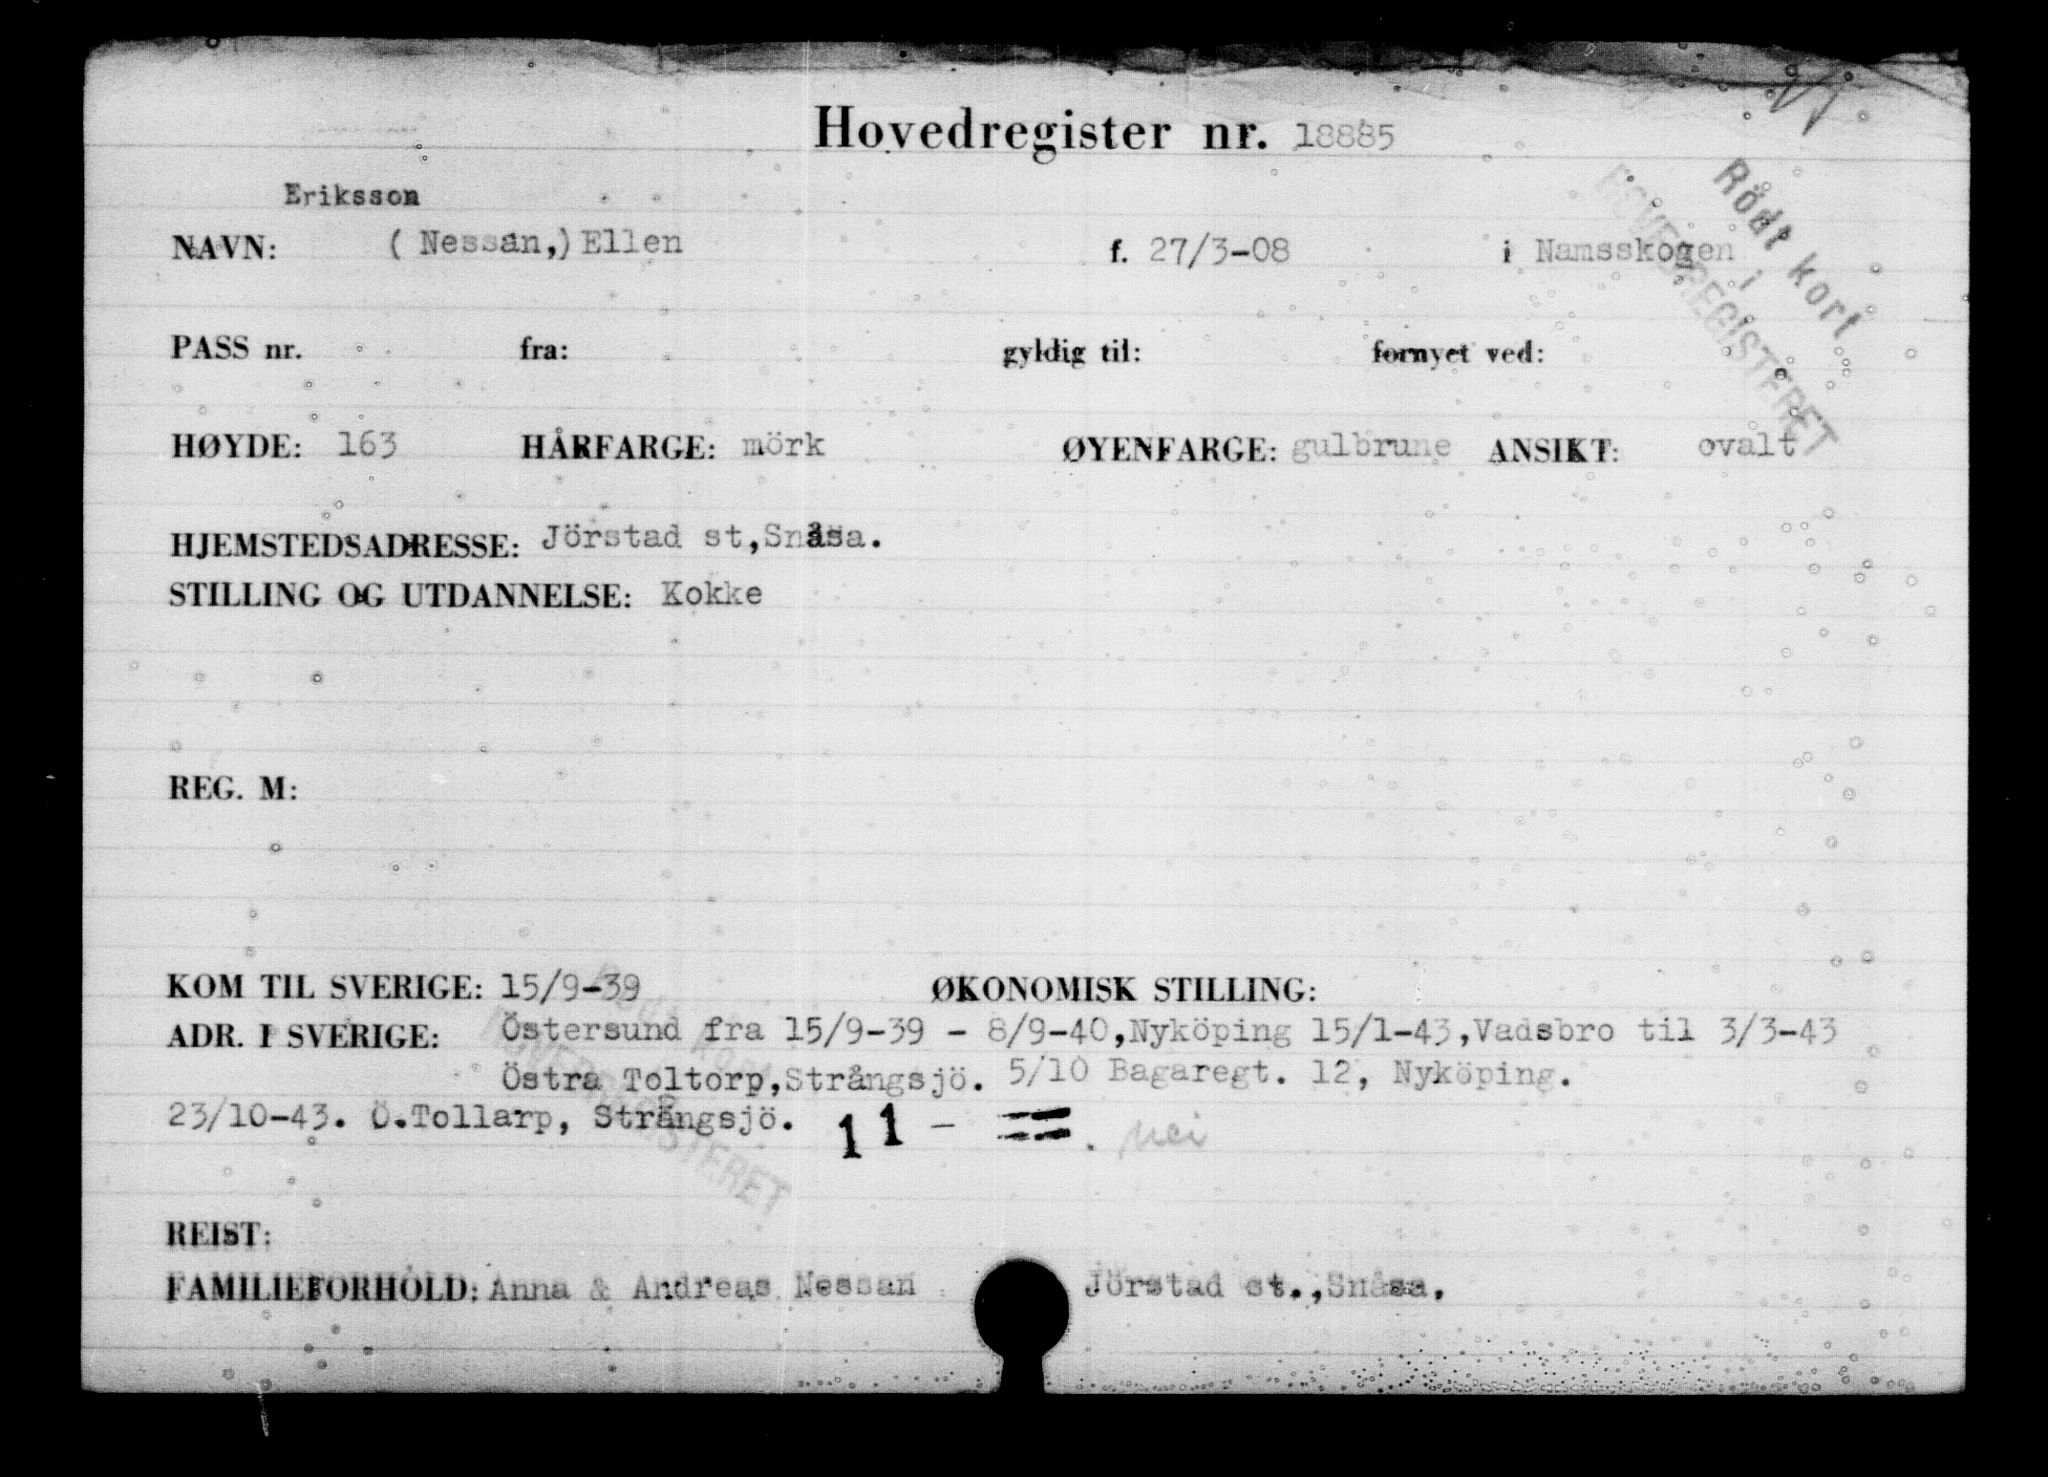 Hovedregister nr. 18885
Rödt kort
i
HOVEDREGISTERET
Eriksson
NAVN: ( Nessan,) Ellen f. 27/3-08 i Namsskogen
PASS nr. fra: gyldig til: fornyet ved:
HØYDE: 163 HÅRFARGE: mörk ØYENFARGE: gulbrune ANSIKT: ovalt
HJEMSTEDSADRESSE: Jörstad st,Snåsa.
STILLING OG UTDANNELSE: Kokke
REG. M:
KOM TIL SVERIGE: 15/9-39 ØKONOMISK STILLING:
ADR. I SVERIGE: Östersund fra 15/9-39 - 8/9-40,Nyköping 15/1-43,Vadsbro til 3/3-43
Östra Toltorp,Strångsjö. 5/10 Bagaregt. 12, Nyköping.
23/10-43. Ö.Tollarp, Strångsjö. 11 - == . nei
HOVEDREGISTERET
REIST:
FAMILIEFORHOLD: Anna & Andreas Nessan Jörstad st.,Snåsa.